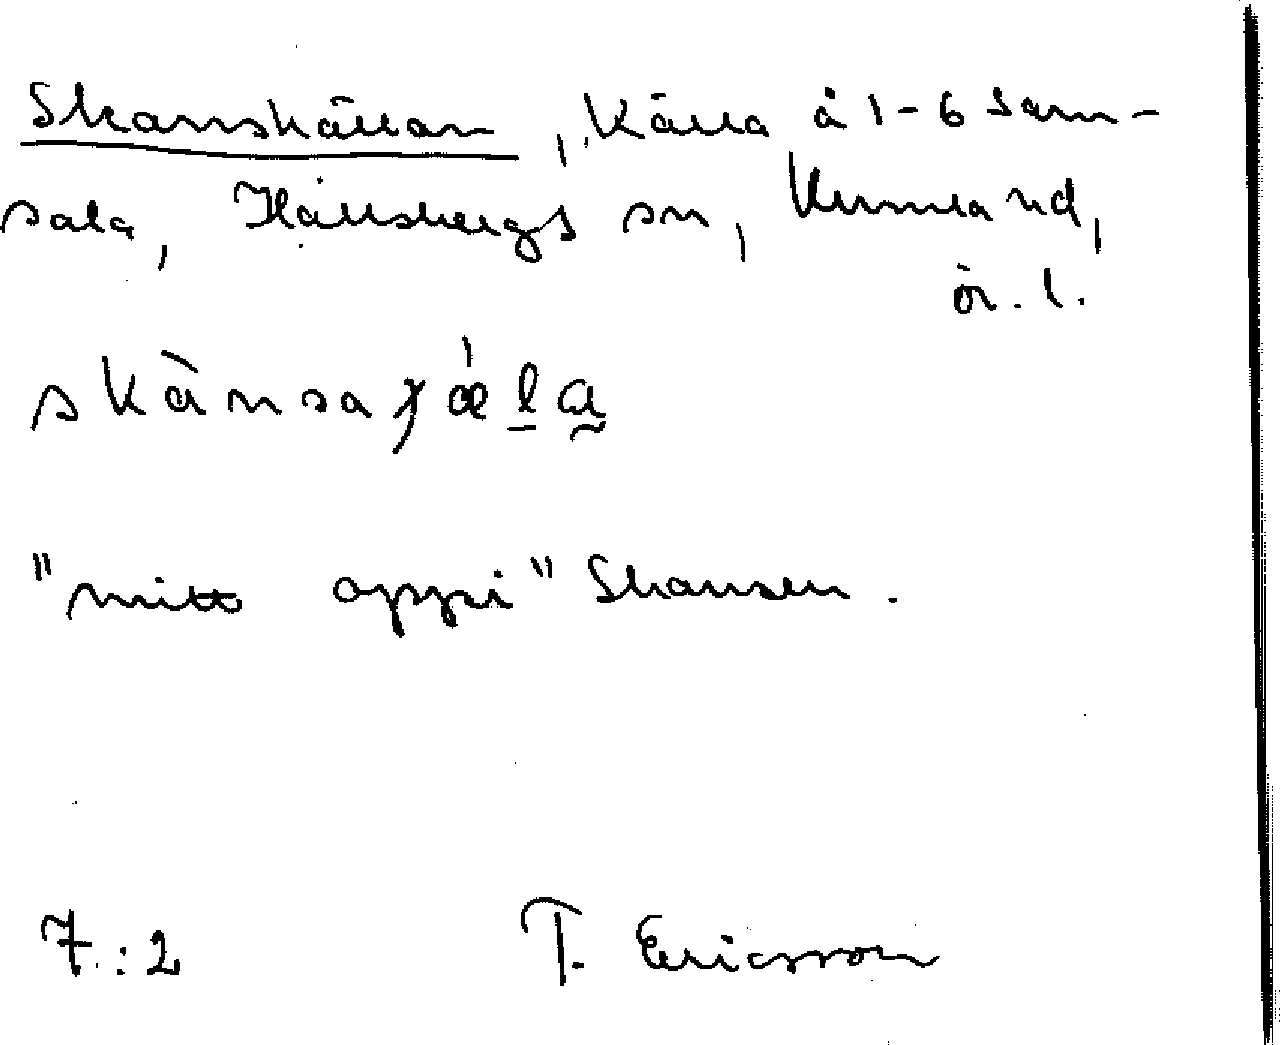 Skanskällan, Källa å 1-6 Sam-
sala, Hallsbergs sn, Kumla hd,
ör. l.
skànsaɟǽla
"mitt oppi" Skansen.
7:2 T. Ericsson